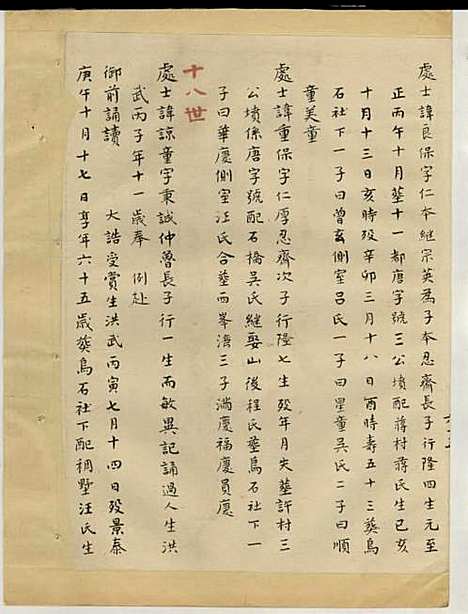 處士諱良保字仁本繼宗英為子本忍齋長子行隆四生元至
正丙午十月葬十一都唐字號三公墳配蔣村蔣氏生己亥
十月十三日亥時歿辛卯三月十八日酉時壽五十三葬烏
石社下一子曰曾玄側室呂氏一子曰星童吳氏二子曰順
童美童
處士諱重保字仁厚忍齋次子行隆七生歿年月失葬許村三
公墳係唐字號配石橋吳氏繼娶山後程氏葬烏石社下一
子曰華慶側室汪氏合葬西峯三子滿慶福慶員慶
十八世
處士諱諒童字秉誠仲曾長子行一生而敏異記誦過人生洪
武丙子年十一歲奉 例赴
御前誦讀 大誥受賞生洪武丙寅七月十四日歿景泰
庚午十月十七日享年六十五歲葬烏石社下配稠墅汪氏生